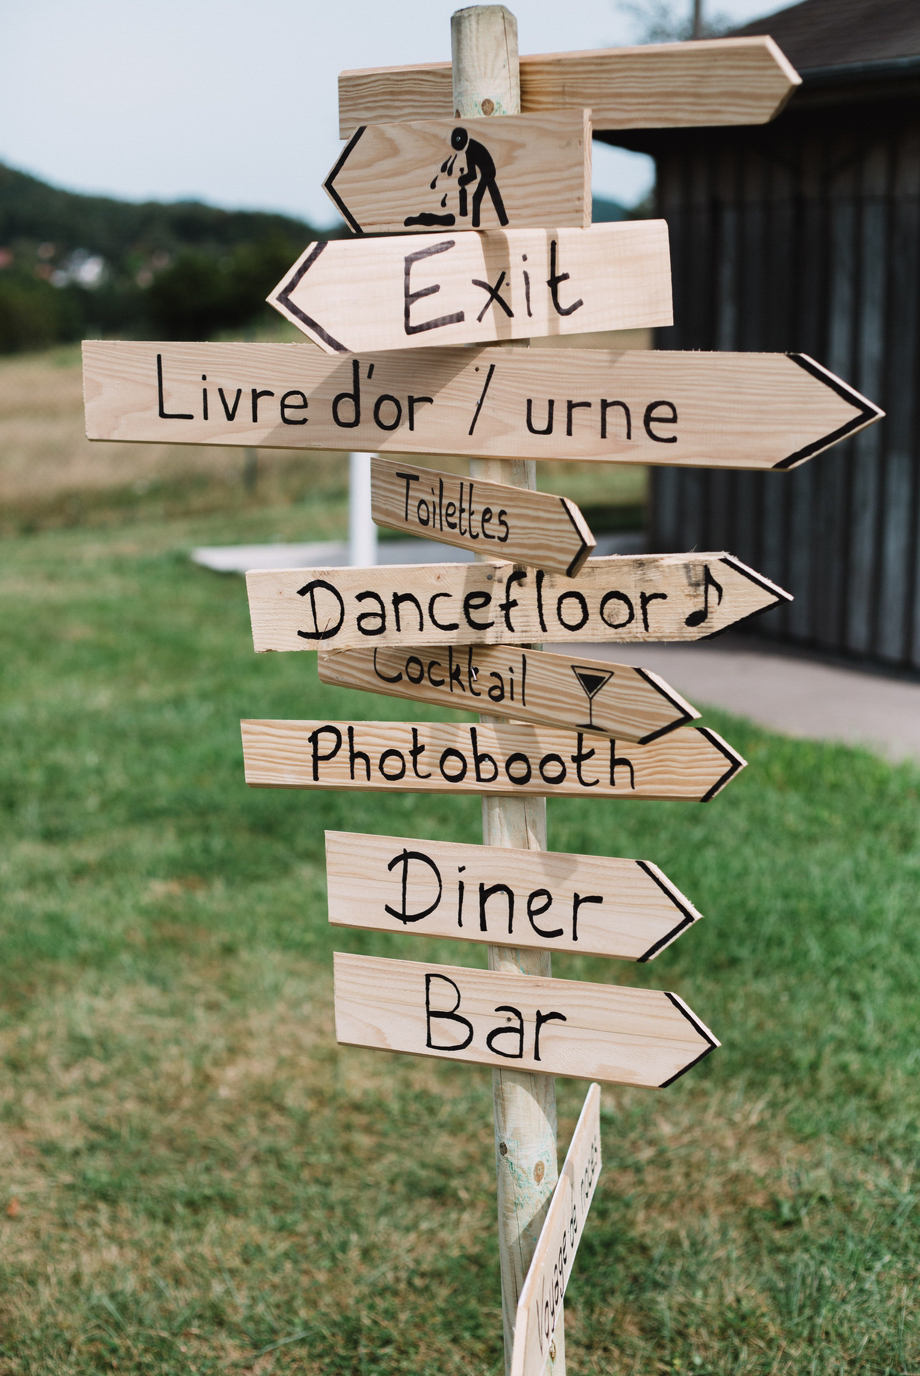 Exit
Livre d'or / urne
Toilettes
Dancefloor
Cocktail
Photobooth
Diner
Bar
Voyage de noces